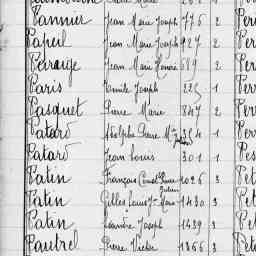 Pannier Jean Marie Joseph 776 2 Per
Papeil Jean Marie 927 2 Per
Perange Jean Marie Honoré 689 2 Per
Paris Emile Joseph 225 1 Per
Pasquet Pierre Marie 847 2 Per
Patard Adolphe Pierre Mie 354 1 Per
Patard Jean Louis 301 1 Pes
Patin François 1026 3 Pet
Patin Gilles Louis Jn Marie 1430 3 Pet
Patin Leandre Joseph 1439 3 Pet
Pautrel Pierre Victor 1366 3 Pet